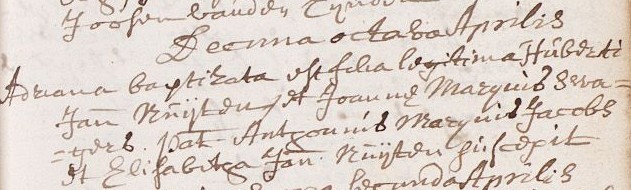 Joosen vanden
Decima octava Aprilis
Adriana baptizata est filia legitima Huberti
Jan Nuijten et Joannę Marquis Seva=
=gers. pat. Anthonius Marquis Jacobs
et Elisabetha Jan Nuijten suscepit
secunda Aprilis